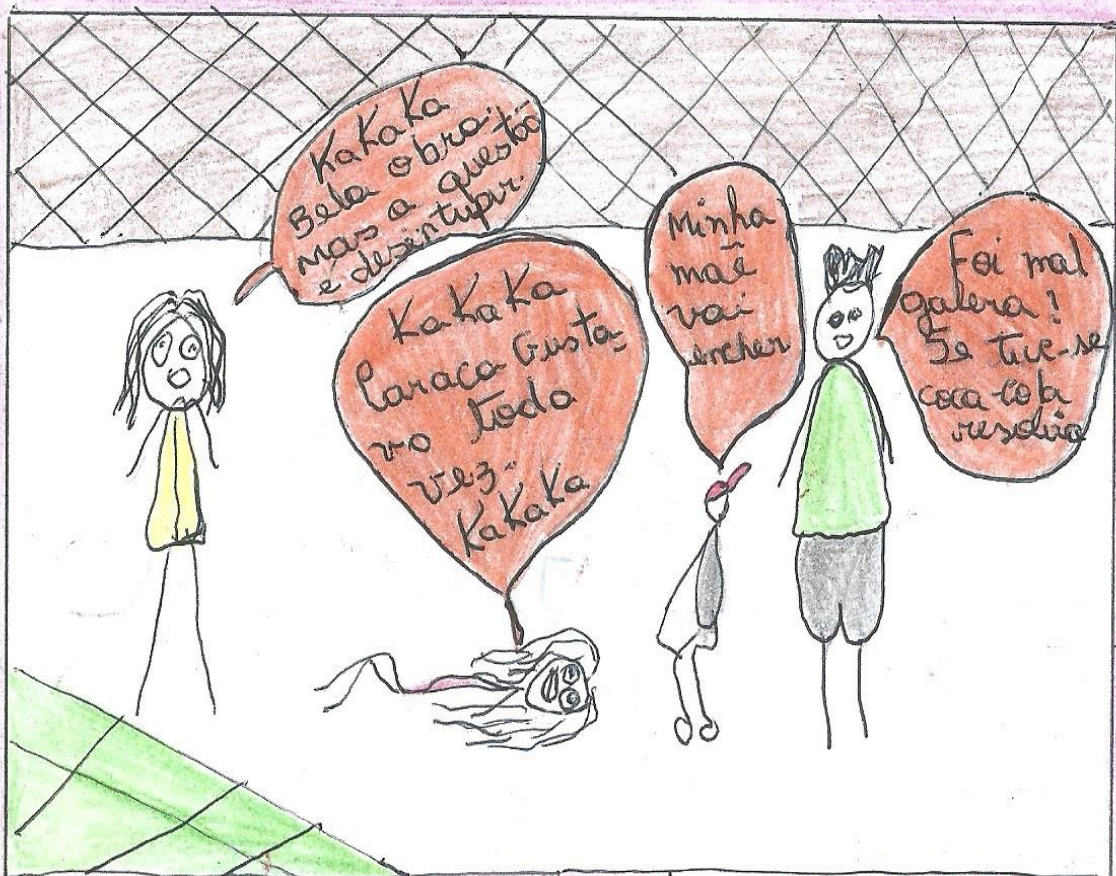 KaKaKa
Bela obra.
mas a questão
é desintupir.
KaKaKa
Caraca Gusta-
vo toda
vez..
KaKaKa
Minha
mãe
vai
encher
Foi mal
galera!
Se tive-se
coca-cola
resolvia